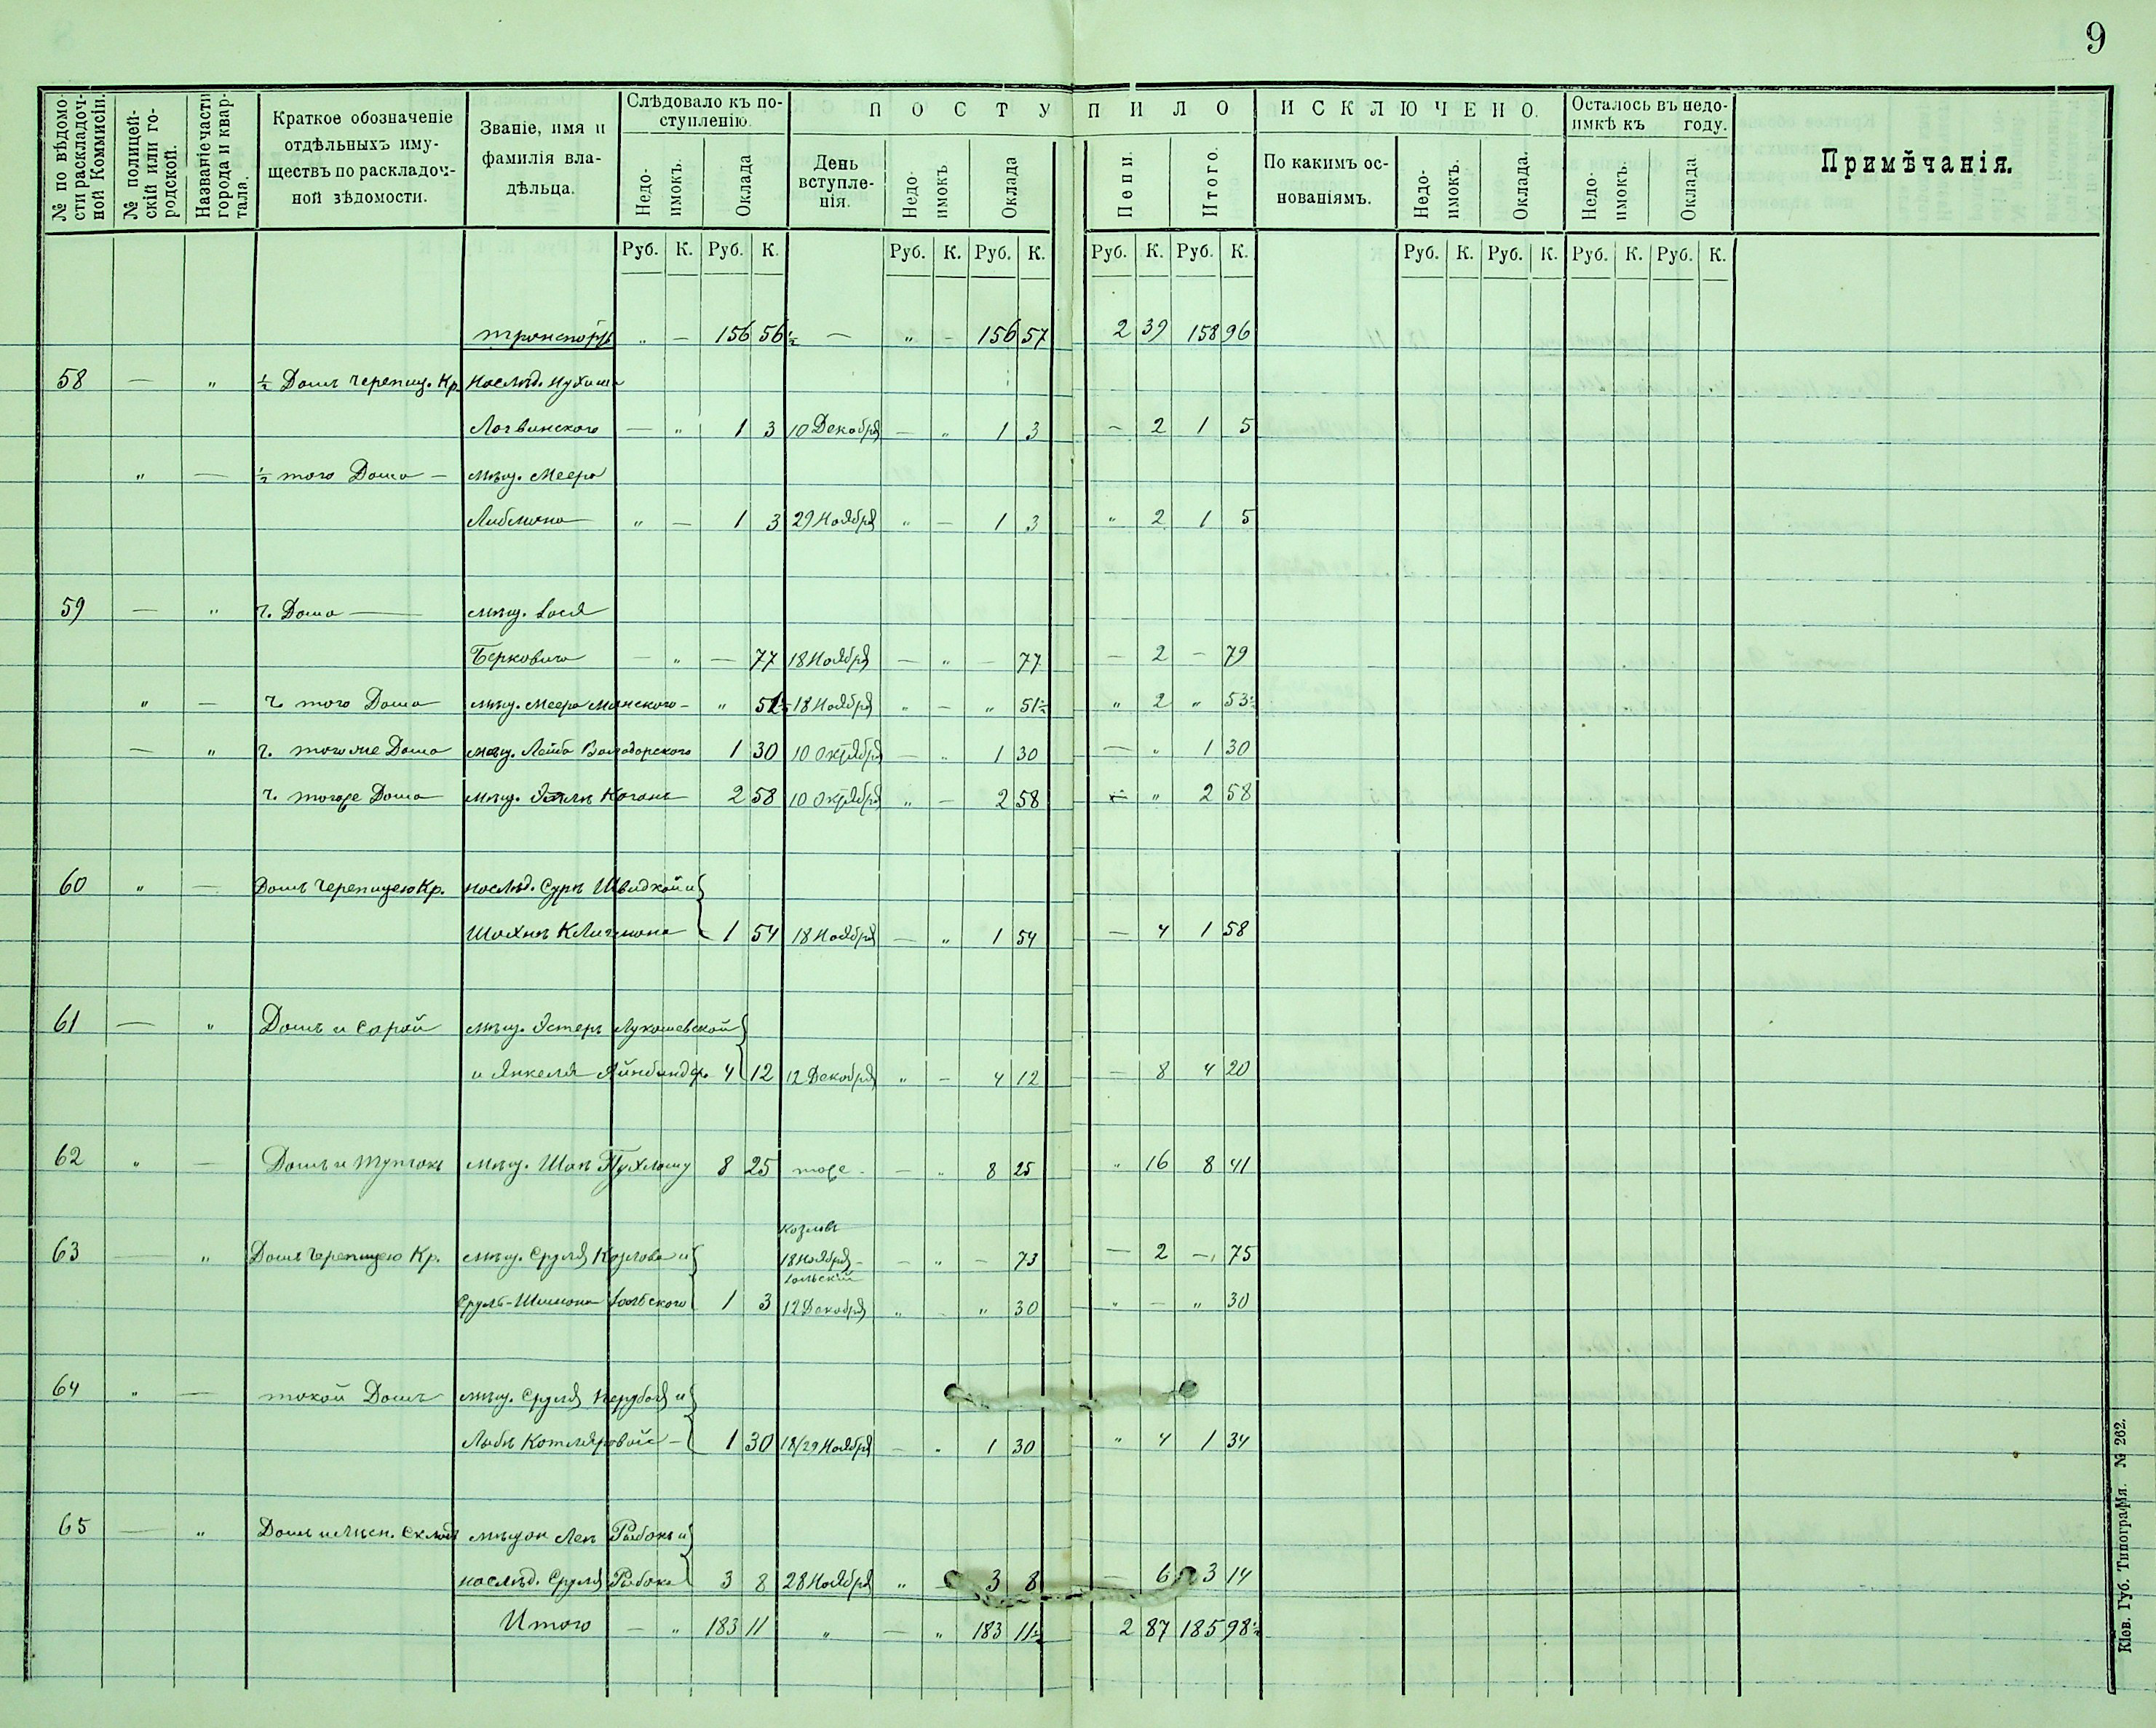 9
№ по вѣдомости раскладочной Коммисіи.
№ полицейскій или городской.
Названіе части города и квартала.
Краткое обозначеніе отдѣльныхъ имуществъ по раскладочной зѣдомости.
Званіе, имя и фамилія владѣльца.
Слѣдовало къ поступленію.
Недоимокъ.
Оклада
ПОСТУПИЛО
День вступленія.
Недоимокъ
Оклада
Пени.
Итого.
ИСКЛЮЧЕНО.
По какимъ основаніямъ.
Недоимокъ.
Оклада.
Осталось въ недоимкѣ къ году.
Недоимокъ.
Оклада
Примѣчанія.
Руб. К. Руб. К. Руб. К. Руб. К. Руб. К. Руб. К. Руб. К. Руб. К. Руб. К. Руб. К.
транспортъ „ — 156 56½ — „ - 156 57 2 39 158 96
58 — „ ½ Домъ черепиц. Кр. наслѣд. Нухима
Логвинского — „ 1 3 10 Декабря — „ 1 3 - 2 1 5
„ — ½ того Дома — мѣщ. Меера
Либмана „ — 1 3 29 Ноября „ — 1 3 „ 2 1 5
59 — „ ч. Дома — мѣщ. Іося
Берковича — „ — 77 18 Ноября — „ — 77 — 2 — 79
„ — ч. того Дома мѣщ. Меера Минского - „ 51½ 18 Ноября „ — „ 51½ „ 2 „ 53½
— „ ч. того же Дома мѣщ. Лейба 1 30 10 Октября — „ 1 30 — „ 1 30
ч. тогоже Дома мѣщ. Коганъ 2 58 10 Октября „ — 2 58 „ 2 58
60 „ — Домъ Черепицею Кр. наслѣд. Суры Швидкой и
1 54 18 Ноября — „ 1 54 — 4 1 58
61 — „ Домъ и Сарай мѣщ. Эстеръ Лукашевской
и Янкеля 4 12 12 Декабря „ — 4 12 — 8 4 20
62 „ — Домъ и мѣщ. 8 25 тоже - — „ 8 25 „ 16 8 41
Козловъ
63 — „ Домъ Черепицею Кр. мѣщ. Сруля Козлова и 18 Ноября - — „ — 73 — 2 — 75
Сруль-Шимона 1 3 12 Декабря „ - „ 30 „ — „ 30
64 „ — такой Домъ мѣщ. Сруля и
Любы Котляровой — 1 30 18/29 Ноября — „ 1 30 „ 4 1 34
65 — „ Домъ и мѣщан Леи Рыбакъ и
наслѣд. Сруля Рыбака 3 8 28 Ноября „ — 3 8 — 6 3 14
Итого — „ 183 11 „ — „ 183 11½ 2 87 185 98½
Кіев. Губ. Типографія. № 262.